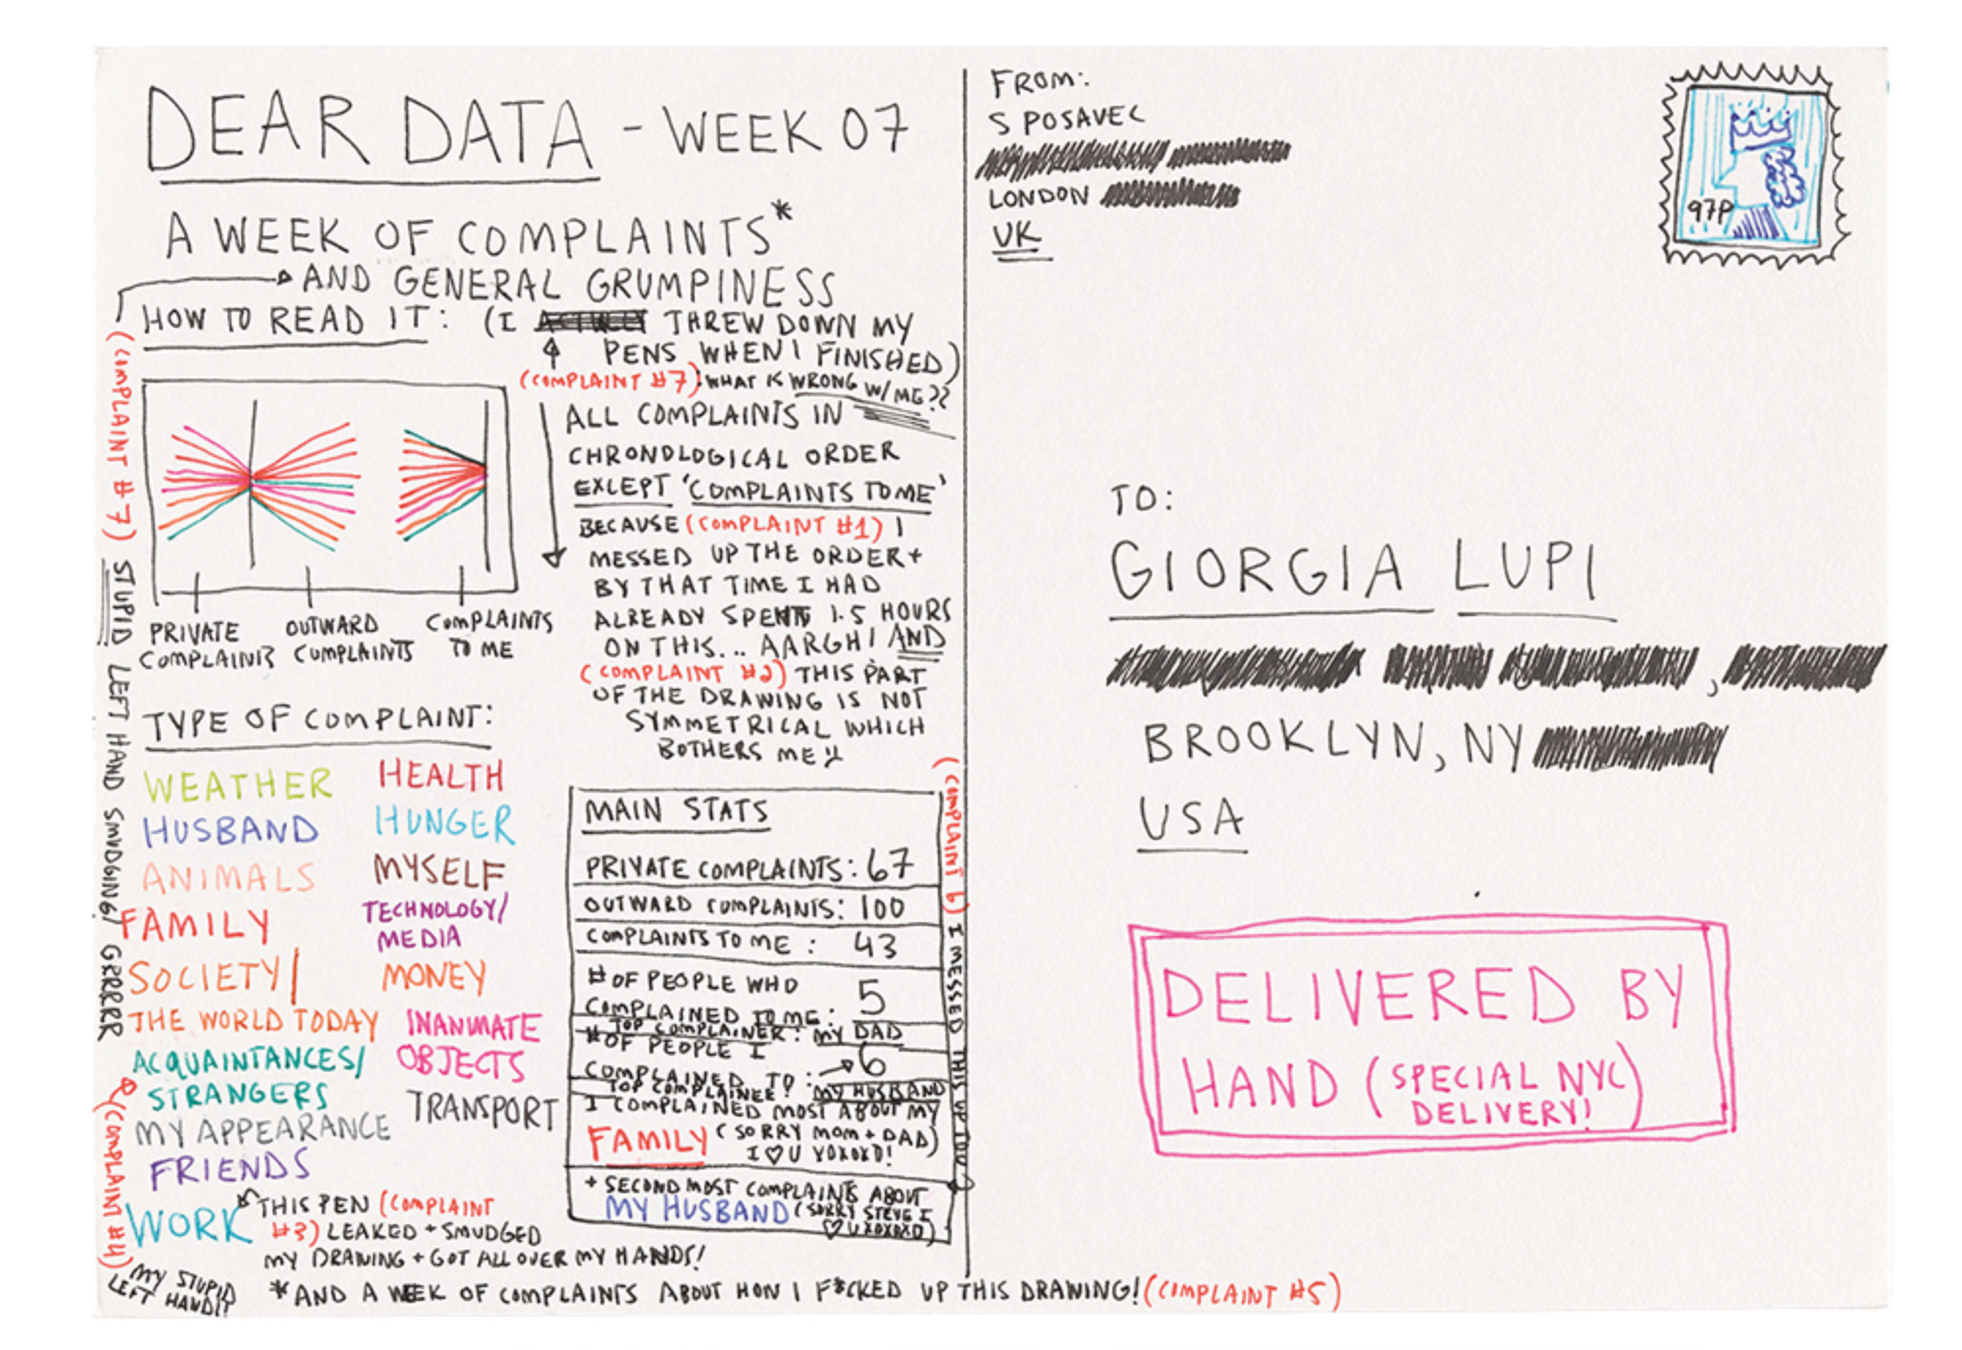 DEAR DATA - WEEK 07
A WEEK OF COMPLAINTS*
AND GENERAL GRUMPINESS
HOW TO READ IT: (I THREW DOWN MY
PENS WHEN I FINISHED)
(COMPLAINT #7) WHAT IS WRONG W/ME??
(COMPLAINT #7) STUPID LEFT HAND SMUDGING! GRRRRR
PRIVATE
COMPLAINTS
OUTWARD
COMPLAINTS
COMPLAINTS
TO ME
ALL COMPLAINTS IN
CHRONOLOGICAL ORDER
EXCEPT 'COMPLAINTS TO ME'
BECAUSE (COMPLAINT #1) I
MESSED UP THE ORDER +
BY THAT TIME I HAD
ALREADY SPENT 1.5 HOURS
ON THIS... AARGH! AND
(COMPLAINT #2) THIS PART
OF THE DRAWING IS NOT
SYMMETRICAL WHICH
BOTHERS ME!!
TYPE OF COMPLAINT:
WEATHER
HUSBAND
ANIMALS
FAMILY
SOCIETY/
THE WORLD TODAY
ACQUAINTANCES/
STRANGERS
MY APPEARANCE
FRIENDS
WORK
HEALTH
HUNGER
MYSELF
TECHNOLOGY/
MEDIA
MONEY
INANIMATE
OBJECTS
TRANSPORT
THIS PEN (COMPLAINT
#3) LEAKED + SMUDGED
MY DRAWING + GOT ALL OVER MY HANDS!
(COMPLAINT #4)
MY STUPID
LEFT HAND!!
MAIN STATS
PRIVATE COMPLAINTS: 67
OUTWARD COMPLAINTS: 100
COMPLAINTS TO ME: 43
# OF PEOPLE WHO
COMPLAINED TO ME: 5
TOP COMPLAINER: MY DAD
# OF PEOPLE I
COMPLAINED TO: 6
TOP COMPLAINEE: MY HUSBAND
I COMPLAINED MOST ABOUT MY
FAMILY (SORRY MOM + DAD)
I ♡ U XOXOXO!
+ SECOND MOST COMPLAINTS ABOUT
MY HUSBAND (SORRY STEVE I
♡ U XOXOXO)
(COMPLAINT 6) I MESSED THIS UP TOO
*AND A WEEK OF COMPLAINTS ABOUT HOW I F*CKED UP THIS DRAWING! (COMPLAINT #5)
FROM:
S POSAVEC
LONDON
UK
97P
TO:
GIORGIA LUPI
BROOKLYN, NY
USA
DELIVERED BY
HAND (SPECIAL NYC
DELIVERY!)